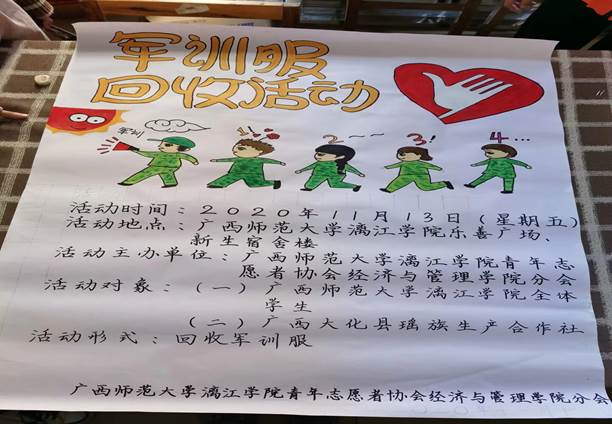 军训服
回收活动
军训
1!
2~~
3!
4...
活动时间：2020年11月13日(星期五)
活动地点：广西师范大学漓江学院乐善广场、
新生宿舍楼
活动主办单位：广西师范大学漓江学院青年志
愿者协会经济与管理学院分会
活动对象：(一)广西师范大学漓江学院全体
学生
(二)广西大化县瑶族生产合作社
活动形式：回收军训服
广西师范大学漓江学院青年志愿者协会经济与管理学院分会